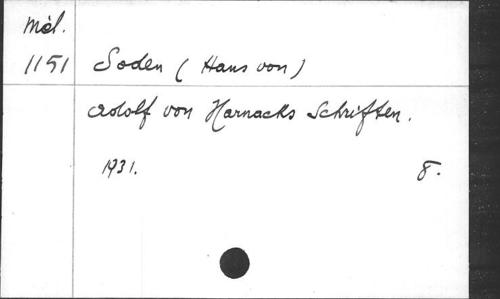 Mél.
1151 Soden (Hans von)
Adolf von Harnacks Schriften.
1931. 8.